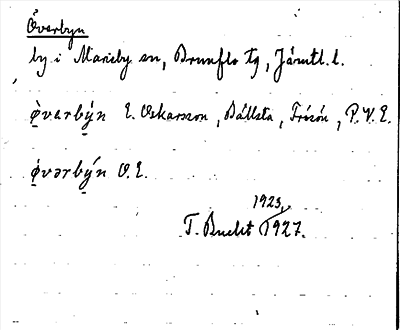 Överbyn
by i Marieby sn, Brunflo tg, Jämtl. l.
ø̀vərbý̱n E. Oskarsson, Bällsta, Frösön, P.V.E.
ǿvərbý̱n O.E.
1923,
T. Bucht 1927.